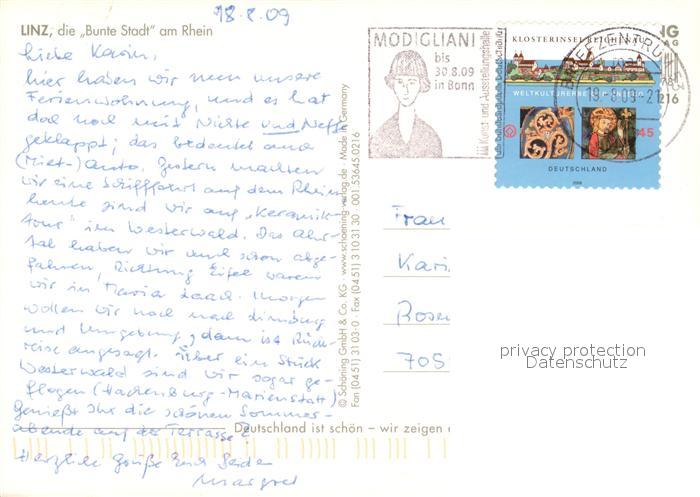 18.8.09
LINZ, die „Bunte Stadt" am Rhein
Liebe Karin,
hier haben wir nun unsere
Ferienwohnung, und es hat
doch noch mit Nichte und Neffe
geklappt; das bedeutet auch
(Miet-)auto. Gestern machten
wir eine Schiffahrt auf dem Rhein
heute sind wir auf „Keramik-
tour" im Westerwald. Das Ahr-
tal haben wir auch schon abge-
fahren, Richtung Eifel waren
wir in Maria Laach. Morgen
wollen wir noch nach Limburg
und Umgebung, dann ist Rück-
reise angesagt. Über ein Stück
Westerwald sind wir sogar ge-
flogen (Hachenburg-Marienstatt)
Genießt Ihr die schönen Sommer-
abende auf der Terrasse?
Herzliche Grüße Euch beiden
Margret
© Schöning GmbH & Co. KG · www.schoening-verlag.de · Made in Germany
Fax (0451) 31 03-0 · Fax (0451) 310 31 30 001·53645·0216
Deutschland ist schön – wir zeigen
MODIGLIANI
bis
30.8.09
in Bonn
Kunst- und Ausstellungshalle
der Bundesrepublik Deutschland
KLOSTERINSEL REICHENAU
WELTKULTURERBE DER UNESCO
45
DEUTSCHLAND
2008
BRIEFZENTRUM
19.8.09-21
Frau
Kari
Rosen
705
privacy protection
Datenschutz